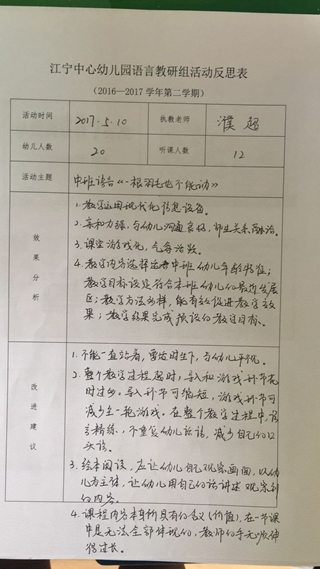 江宁中心幼儿园语言教研组活动反思表
（2016—2017 学年第二学期）
活动时间 2017.5.10 执教老师 濮超
幼儿人数 20 听课人数 12
活动主题 中班语言《一根羽毛也不能动》
效果分析
1. 教学运用现代化信息设备。
2. 亲和力强，与幼儿沟通良好，师生关系融洽。
3. 课堂游戏化，气氛活跃。
4. 教学内容选择适合中班幼儿年龄特征；
教学目标设定符合本班幼儿的最近发展
区；教学方法多样，能有效促进教学效
果；教学效果完成预设的教学目标。
改进建议
1. 不能一直站着，需适时坐下，与幼儿平视。
2. 整个教学过程超时，导入和游戏环节花
时过多，导入环节可缩短，游戏环节可
减少至一轮游戏。在整个教学过程中，语
言精练，不重复幼儿的话，减少自己的口
头语。
3. 绘本阅读，应让幼儿自己观察画面，以幼
儿为主体，让幼儿用自己的话讲述观察到
的内容。
4. 课程内容本身所具有的含义（价值），在一节课
中是无法全部体现的，教师的手无须伸
得过长。